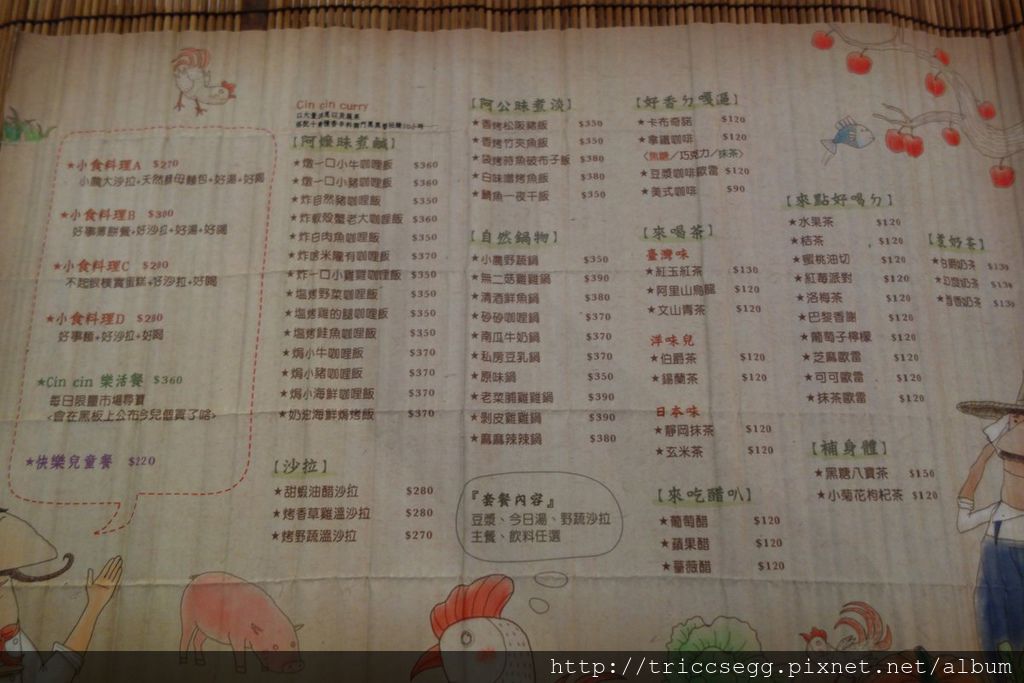 ★小食料理A $270
小農大沙拉+天然酵母麵包+好湯+好喝
★小食料理B $300
好事薄餅餐+好沙拉+好湯+好喝
★小食料理C $280
+好沙拉+好喝
★小食料理D $280
好事麵+好沙拉+好喝
★Cin cin 樂活餐 $360
每日限量市場尋寶
<會在黑板上公布今兒個買了啥>
★快樂兒童餐 $220
Cin cin curry
【阿嬤味煮鹹】
★燉一口小牛咖哩飯 $360
★燉一口小豬咖哩飯 $360
★炸自然豬咖哩飯 $350
★炸軟殼蟹老大咖哩飯 $360
★炸白肉魚咖哩飯 $350
★炸喀米龍有咖哩飯 $370
★炸一口小雞雞咖哩飯 $350
★塩烤野菜咖哩飯 $350
★塩烤雞的腿咖哩飯 $350
★塩烤鮭魚咖哩飯 $350
★焗小牛咖哩飯 $370
★焗小豬咖哩飯 $370
★焗小海鮮咖哩飯 $370
★奶油海鮮焗烤飯 $370
【沙拉】
★甜蝦油醋沙拉 $280
★烤香草雞溫沙拉 $280
★烤野蔬溫沙拉 $270
【阿公味煮淡】
★香烤松阪豬飯 $350
★香烤竹夾魚飯 $350
★袋烤時魚破布子飯 $380
★白味噌烤魚飯 $380
★鯖魚一夜干飯 $350
【自然鍋物】
★小農野蔬鍋 $350
★無二菇雞雞鍋 $390
★清酒鮮魚鍋 $380
★矽矽咖哩鍋 $370
★南瓜牛奶鍋 $370
★私房豆乳鍋 $370
★原味鍋 $350
★老菜脯雞雞鍋 $390
★剝皮雞雞鍋 $390
★麻麻辣辣鍋 $380
『套餐內容』
豆漿、今日湯、野蔬沙拉
主餐、飲料任選
【好香ㄉ嘎逼】
★卡布奇諾 $120
★拿鐵咖啡 $120
〈焦糖／巧克力／抹茶〉
★豆漿咖啡歐雷 $120
★美式咖啡 $90
【來喝茶】
臺灣味
★紅玉紅茶 $130
★阿里山烏龍 $120
★文山青茶 $120
洋味兒
★伯爵茶 $120
★錫蘭茶 $120
日本味
★靜岡抹茶 $120
★玄米茶 $120
【來吃醋叭】
★葡萄醋 $120
★蘋果醋 $120
★薔薇醋 $120
【來點好喝ㄉ】
★水果茶 $120
★桔茶 $120
★蜜桃油切 $120
★紅莓派對 $120
★洛梅茶 $120
★巴黎香謝 $120
★葡萄子檸檬 $120
★芝麻歐雷 $120
★可可歐雷 $120
★抹茶歐雷 $120
【補身體】
★黑糖八寶茶 $150
★小菊花枸杞茶 $120
【煮奶茶】
★伯爵奶茶 $130
奶茶 $130
奶茶 $130
http://triccsegg.pixnet.net/album